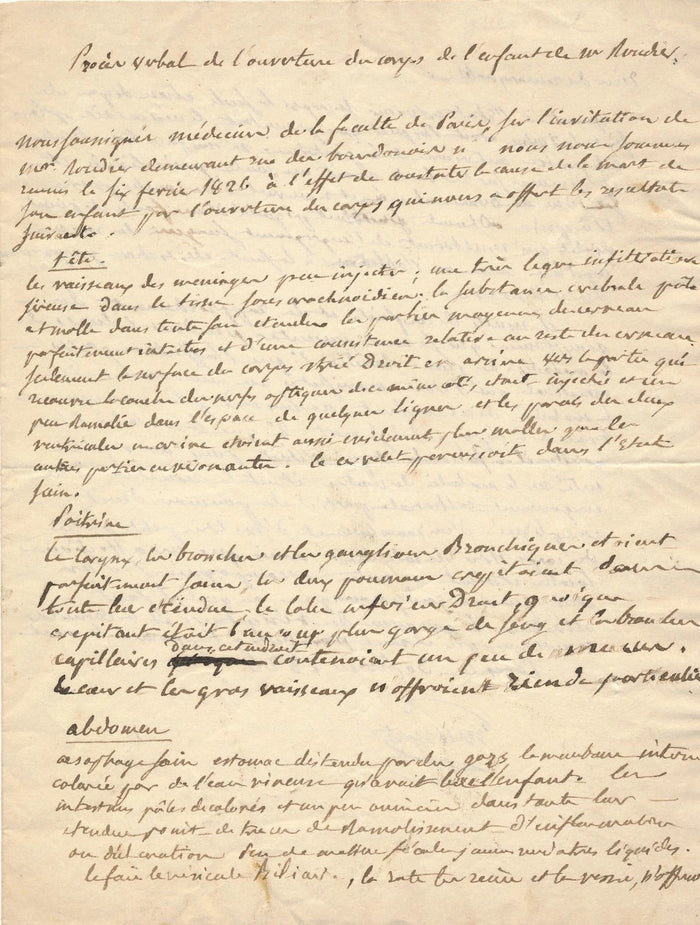 Procès verbal de l'ouverture du corps de l'enfant de mr Roudier.
nous soussignés médecins de la faculté de Paris, sur l'invitation de
mr Roudier demeurant rue des bourdonnais n° nous nous sommes
reunis le six fevrier 1826 à l'effet de constater la cause de la mort de
son enfant par l'ouverture du corps qui nous a offert les resultats
suivants.
tête.
les vaisseaux des meninges peu injectés; une très legere infiltration
sereuse dans le tissu sous arachnoidien; la substance cerebrale pâle
et molle dans toute son etendue les parties moyennes du cerveau
parfaitement intactes et d'une consistance relative au reste du cerveau.
seulement la surface du corps strié Droit en arriere vers la partie qui
recouvre la couche des nerfs optiques de ce même coté, etait injectée et un
peu Ramolie dans l'espace de quelques lignes et les parois des deux
ventricules en arriere etoient aussi evidemment plus molles que les
autres parties environnantes. le cervelet paroissoit dans l'Etat
sain.
Poitrine
le larynx, les bronches et les ganglions Bronchiques etoient
parfaitement sains, les deux poumons crepitoient dans
toute leur etendue. le lobe inferieur Droit, quoique
crepitant était beaucoup plus gorgé de sang et les bronches
capillaires dans cet endroit contenoient un peu de mucus.
Le cœur et les gros vaisseaux n'offroient rien de particulier
abdomen
œsophage sain estomac distendu par des gazs la membrane interne
colorée par de l'eau vineuse qu'avait bue l'enfant. les
intestins pâles decolorés et un peu amincis dans toute leur
etendue point de traces de Ramolissement d'inflammation
ou d'ulceration peu de matieres fécales jaunes verdatres liquides.
le foie la vesicule Biliaire, la rate les reins et la vessie, n'offroient